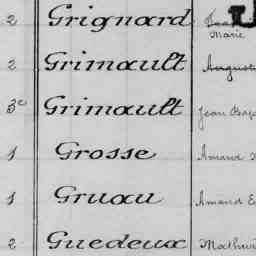 2 Grignard Marie
2 Grimault
3e Grimault Jean
1 Grosse Amand
1 Gruau Amand
2 Guedeux